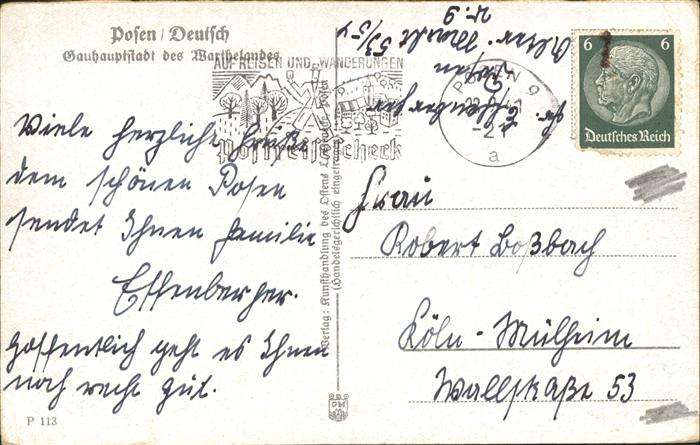 Posen / Deutsch
Gauhauptstadt des Warthelandes
AUF REISEN UND WANDERUNGEN
Postreisescheck
POSEN 9
a
6 6
Deutsches Reich
Posen
53/54
Nr. 9
Viele herzliche Grüße
dem schönen Posen
sendet Ihnen Familie
Effenberger.
Hoffentlich geht es Ihnen
noch recht gut.
Frau
Robert Boßbach
Köln-Mülheim
Wallstraße 53
Verlag: Kunsthandlung des Ostens Posen
(Handelsgerichtlich eingetragen)
P 113